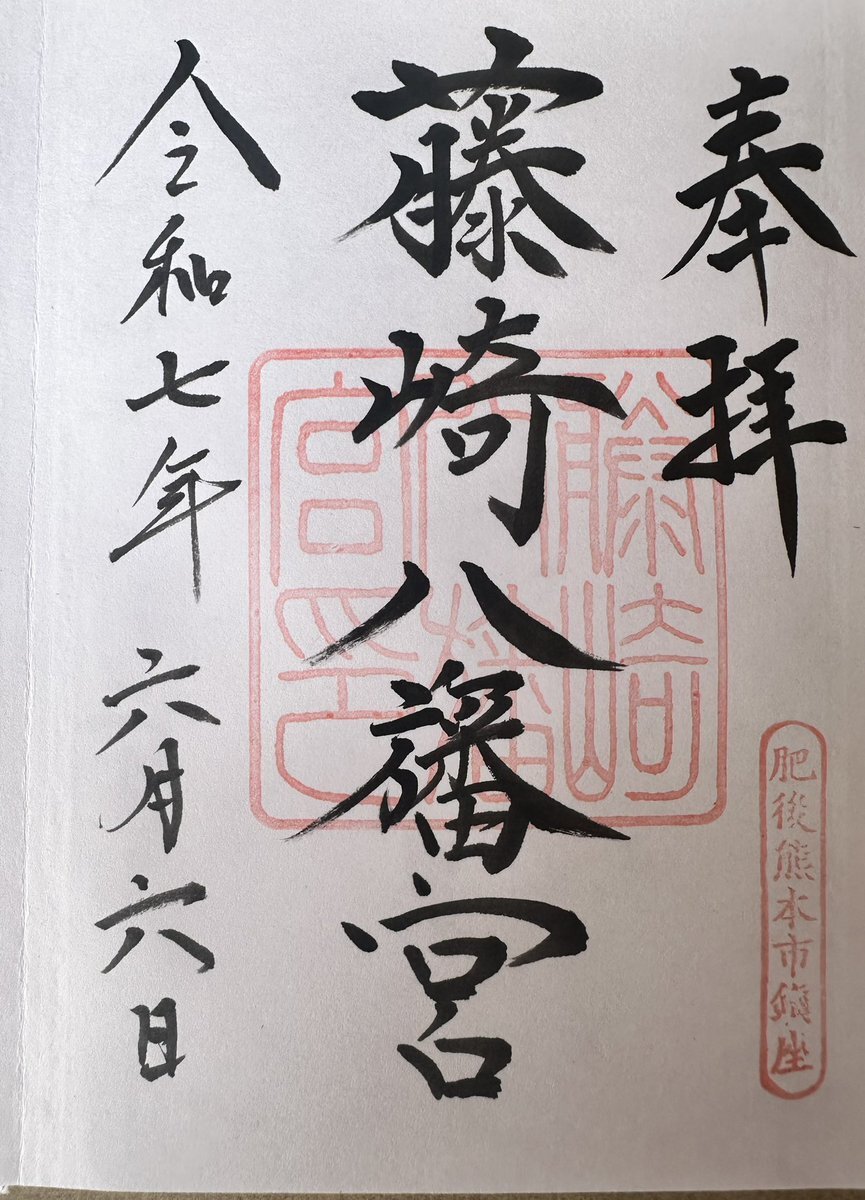 奉拝
肥後熊本市鎮座
藤崎八旛宮
藤崎
宮印
令和七年六月六日